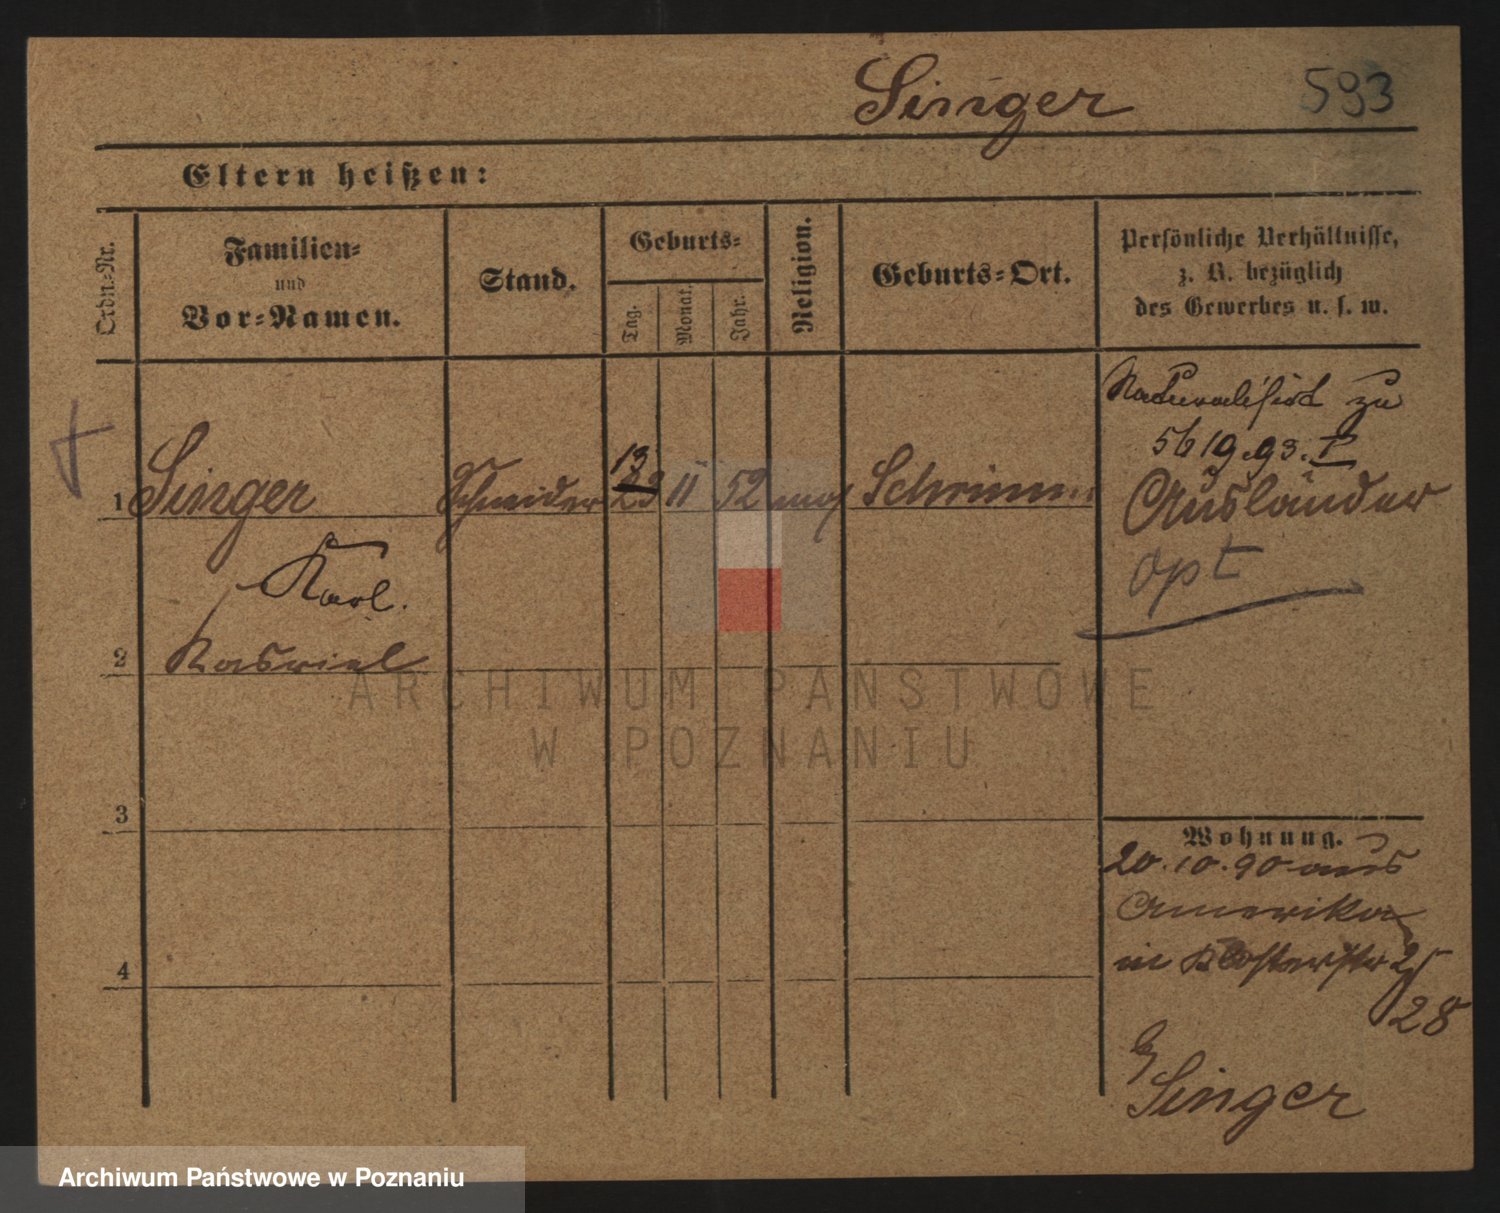 Singer 593
Eltern heißen:
Ordn.-Nr.
Familien-
und
Vor-Namen.
Stand.
Geburts-
Tag.
Monat.
Jahr.
Religion.
Geburts-Ort.
Persönliche Verhältnisse,
z. B. bezüglich
des Gewerbes u. s. w.
1 Singer Schneider 13 23 11 52 mos Schrimm
Karl.
2 Kasriel
3
4
Naturalisirt zu
5619.93. I
Ausländer
opt
Wohnung.
20.10.90 aus
Amerika
in Klosterstr 25
28
b/ Singer
ARCHIWUM PAŃSTWOWE
W POZNANIU
Archiwum Państwowe w Poznaniu